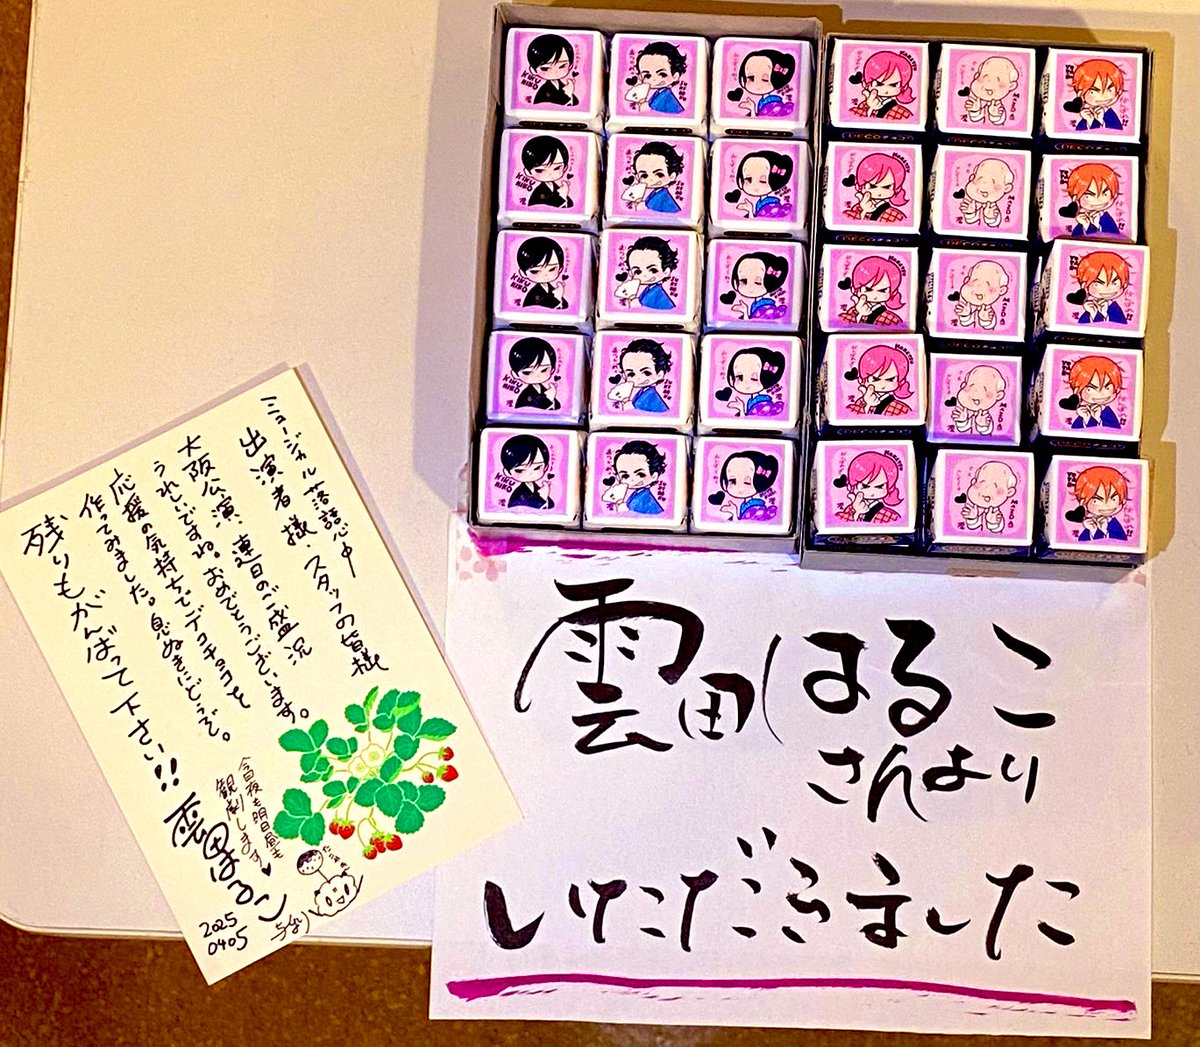 KIKU
HIKO
SUKEROKU
KONATSU
MATSUDA
DECOチョコ
ミュージカル落語心中
出演者様・スタッフの皆様
大阪公演・連日のご盛況
うれしいですね。おめでとうございます。
応援の気持ちでデコチョコを
作ってみました。息ぬきにどうぞ。
残りもがんばって下さい!!
今日夜も明日昼も
観劇します♥
雲田はるこ
2025
0405
雲田はるこ
さんより
いただきました